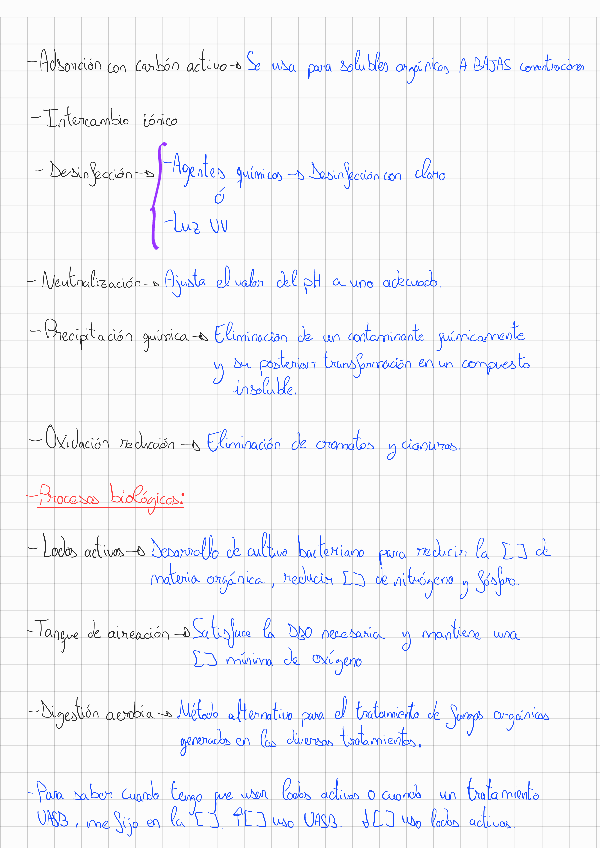 -Adsorción con carbón activo→ Se usa para solubles orgánicos A BAJAS concentraciones
-Intercambio iónico
-Desinfección→ -Agentes químicos→ Desinfección con cloro
ó
-Luz UV
-Neutralización→ Ajusta el valor del pH a uno adecuado.
-Precipitación química→ Eliminación de un contaminante químicamente
y su posterior transformación en un compuesto
insoluble.
-Oxidación reducción→ Eliminación de cromatos y cianuros.
-Procesos biológicos:
-Lodos activos→ Desarrollo de cultivo bacteriano para reducir la [] de
materia orgánica, reducir [] de nitrógeno y fósforo.
-Tanque de aireación→ Satisface la DBO necesaria y mantiene una
[] mínima de oxígeno
-Digestión aerobia→ Método alternativo para el tratamiento de fangos orgánicos
generados en los diversos tratamientos.
-Para saber cuando tengo que usar lodos activos o cuando un tratamiento
UASB, me fijo en la []. ↑[] uso UASB. ↓[] uso lodos activos.